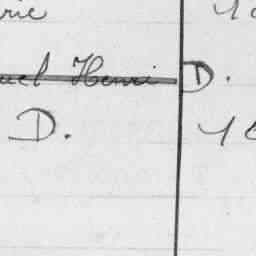 rie
uel Henri D.
D.